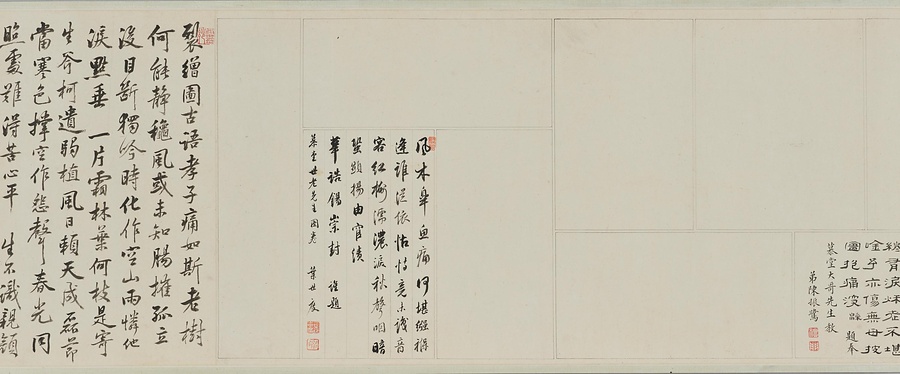 子亦傷無母披
圖挹痛深 題奉
慕堂大哥先生教
弟陳振鷺
風木皋魚痛何堪繈褓
逢誰從依怙恃竟未識音
容紅樹濡濃淚秋聲咽暗
蛩顯揚由官績
華誥錫崇封 謹題
慕堂世老先生圖卷 葉世度
裂繒圖古語孝子痛如斯老樹
何能靜飄風或未知腸摧孤立
沒目斷獨吟時化作空山雨憐他
淚點垂 一片霜林葉何枝是寄
生斧柯遺弱植風日賴天成磊節
當寒色撐空作悲聲春光同
照處難得苦心平 生不識親顏